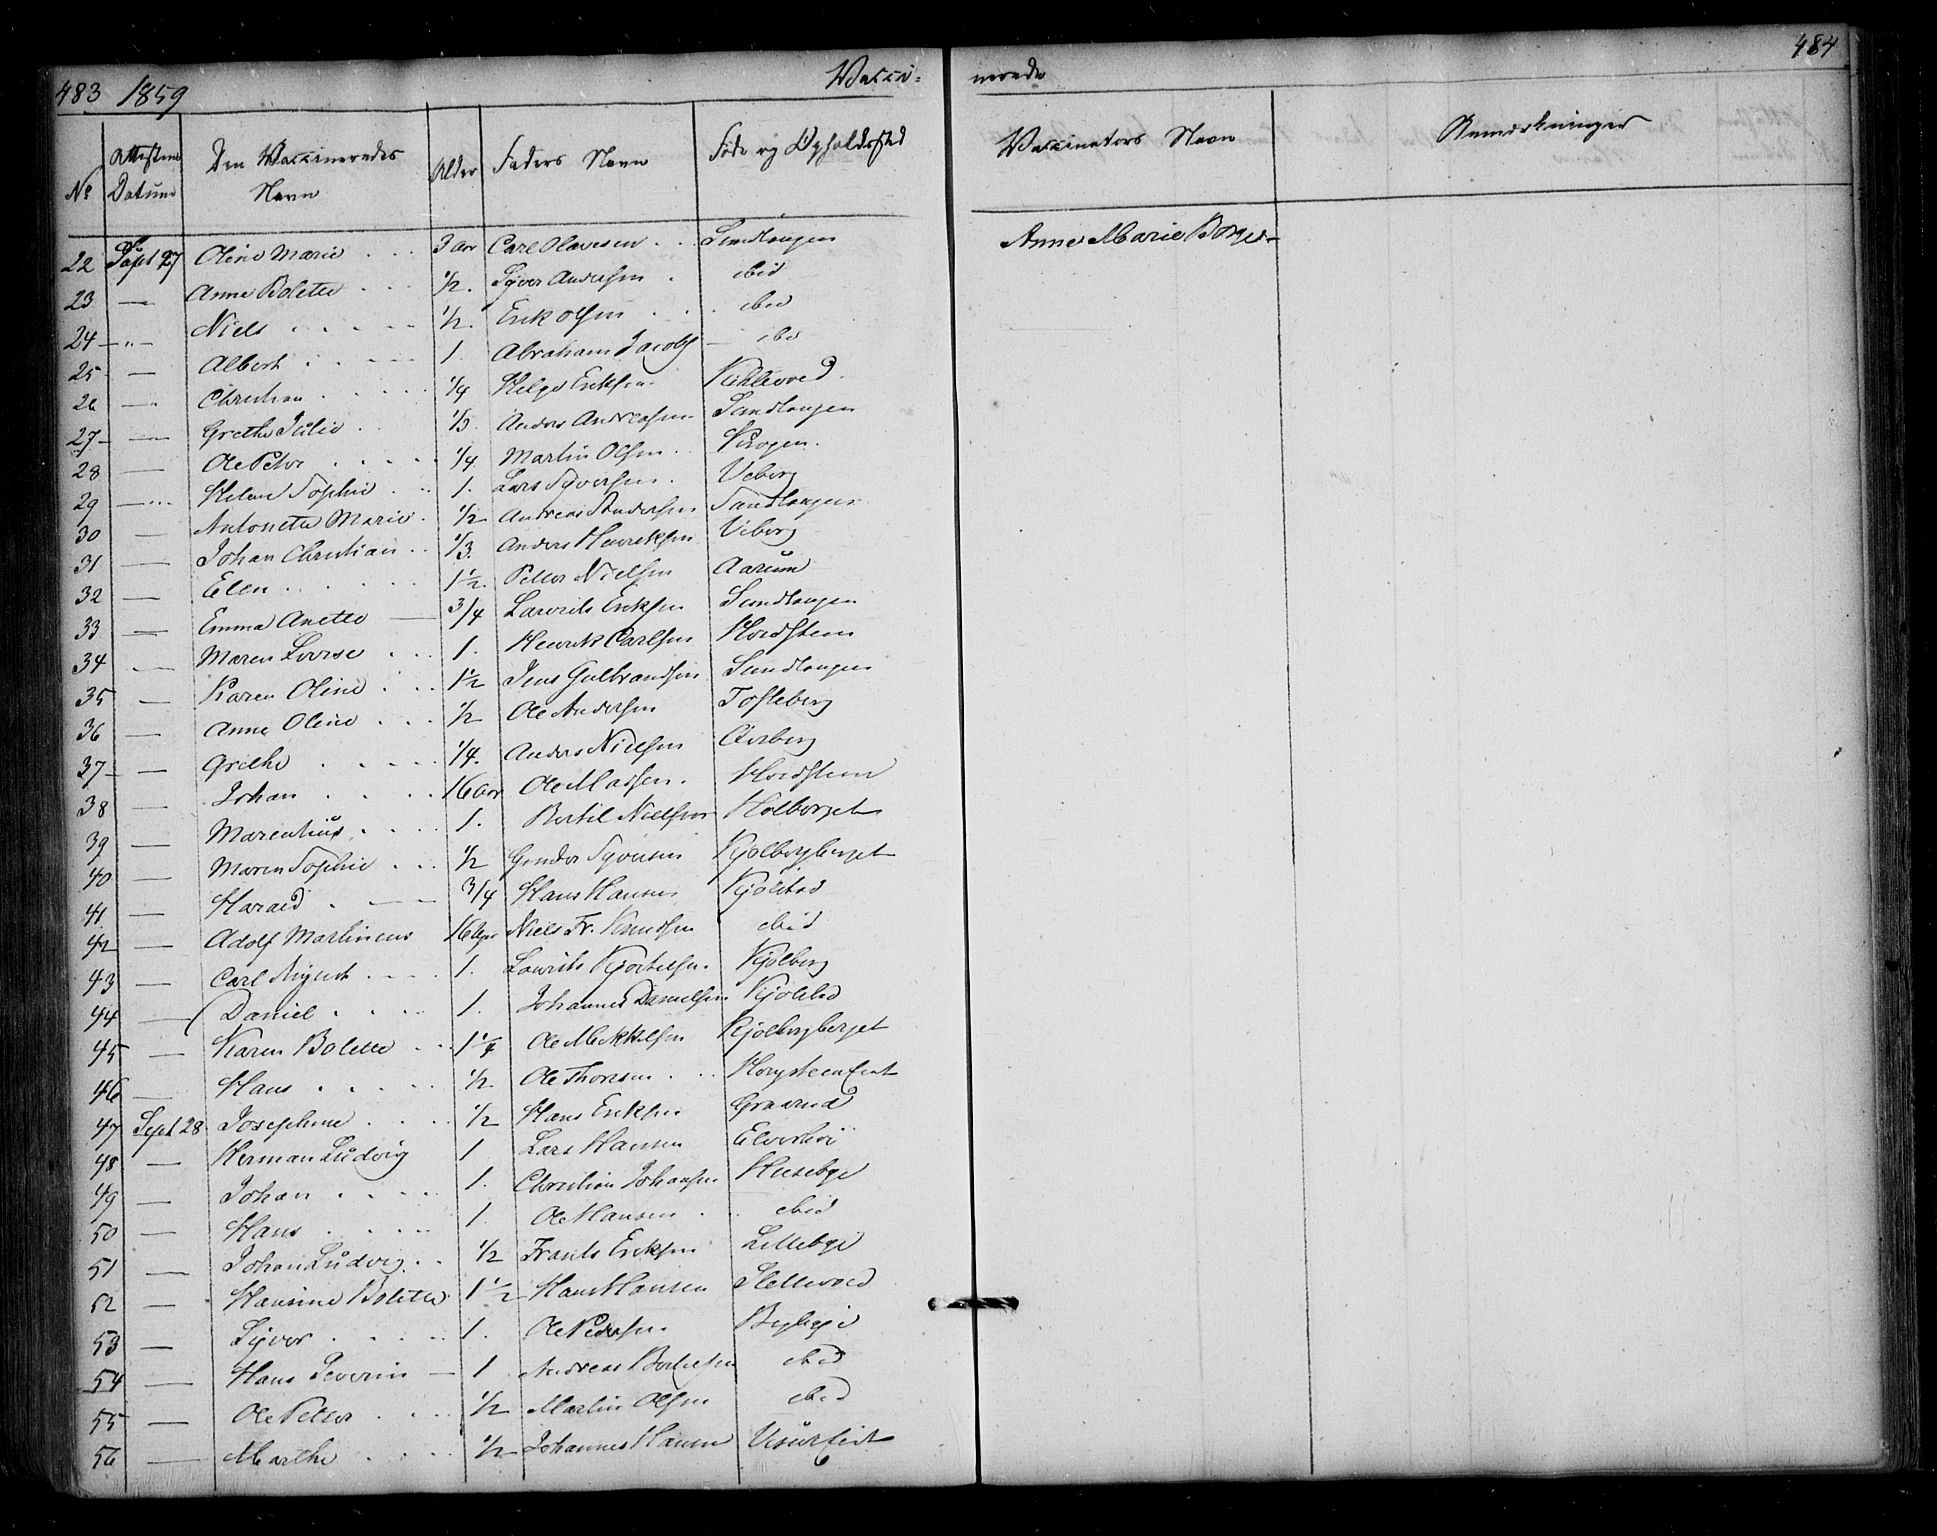 483 1859 Vacci-
nerede 484
No Attestens Datum Den Vaccineredes Navn Alder Faders Navn Føde og Opholdssted Vaccinators Navn Anmerkninger
22 Sept 27 Oline Marie 3 aar Carl Olavesen Sundløugen Anne Marie Borger
23 — Anne Bolette 1/2 Syver Andersen ibid
24 —"— Niels 1/2 Erik Olsen ibid
25 — Albert 1 Abraham Jacobs ibid
26 — Christian 1/4 Helge Eriksen
27 — Grethe Julie 1/3 Anders Andreassen Sundløugen
28 — Ole Peter 1/4 Martin Olsen Krogen
29 — Helene Sophie 1 Lars Syversen Veberg
30 — Antonette Marie 1/2 Andreas Andersen Sandløugen
31 — Johan Christian 1/3 Anders Henriksen Viberg
32 — Elen 1 1/2 Petter Nielsen Aarum
33 — Emma Anette — 3/4 Lavrits Eriksen Sundløugen
34 — Maren Lovise 1 Henrik Carlsen Hordsteen
35 — Karen Oline 1 1/2 Jens Gulbrandsen Sundløugen
36 — Anne Oline 1/2 Ole Andersen Tofteberg
37 — Grethe 1/4 Anders Nielsen
38 — Johan 16 aar Ole Madsen Hordsteen
39 — Marenthius 1 Bertil Nielsen Holberget
40 — Maren Sophie 1/2 Gunder Syversen Kjølbergberget
41 — Harald 3/4 Hans Hansen Kjølstad
42 — Adolf Martinius 16 Niels Fr. Knudsen ibid
43 — Carl August 1 Lavrits Kjostelsen Kjølberg
44 — Daniel 1 Johannes Danielsen Kjølstad
45 — Karen Bolette 1 1/4 Ole Mikkelsen Kjølbergberget
46 — Hans 1/2 Ole Thoresen
47 Sept 28 Josephine 1/2 Hans Eriksen Graarud
48 — Herman Ludvig 1 Lars Hansen Elverhøi
49 — Johan 1 Christian Johansen Huseby
50 — Hans 1 Ole Hansen ibid
51 — Johan Ludvig 1/2 Frants Eriksen Lilleby
52 — Hansine Bolette 1 1/2 Hans Hansen
53 — Syver 1 Ole Pedersen
54 — Hans Severin — 1 Andreas Bertelsen ibid
55 — Ole Petter 1/2 Martin Olsen ibid
56 — Marthe 1/2 Johannes Hansen